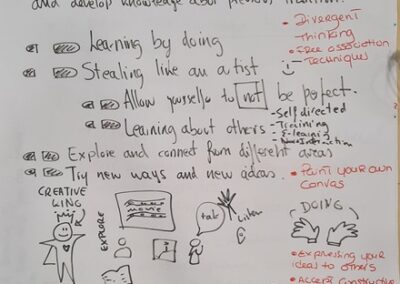 and develop knowledge about previous
• Divergent
Thinking
• Free association
Techniques
Learning by doing
Stealing like an artist
Allow yourself to not be perfect.
- Self directed
- Training
- E-learning
Learning about others
Explore and connect from different areas
Try new ways and new ideas.
• Paint your own
Canvas
CREATIVE
KING
EXPLORE
movie
talk
Listen
DOING
• Expressing your
ideas to others
• Accept Constructive